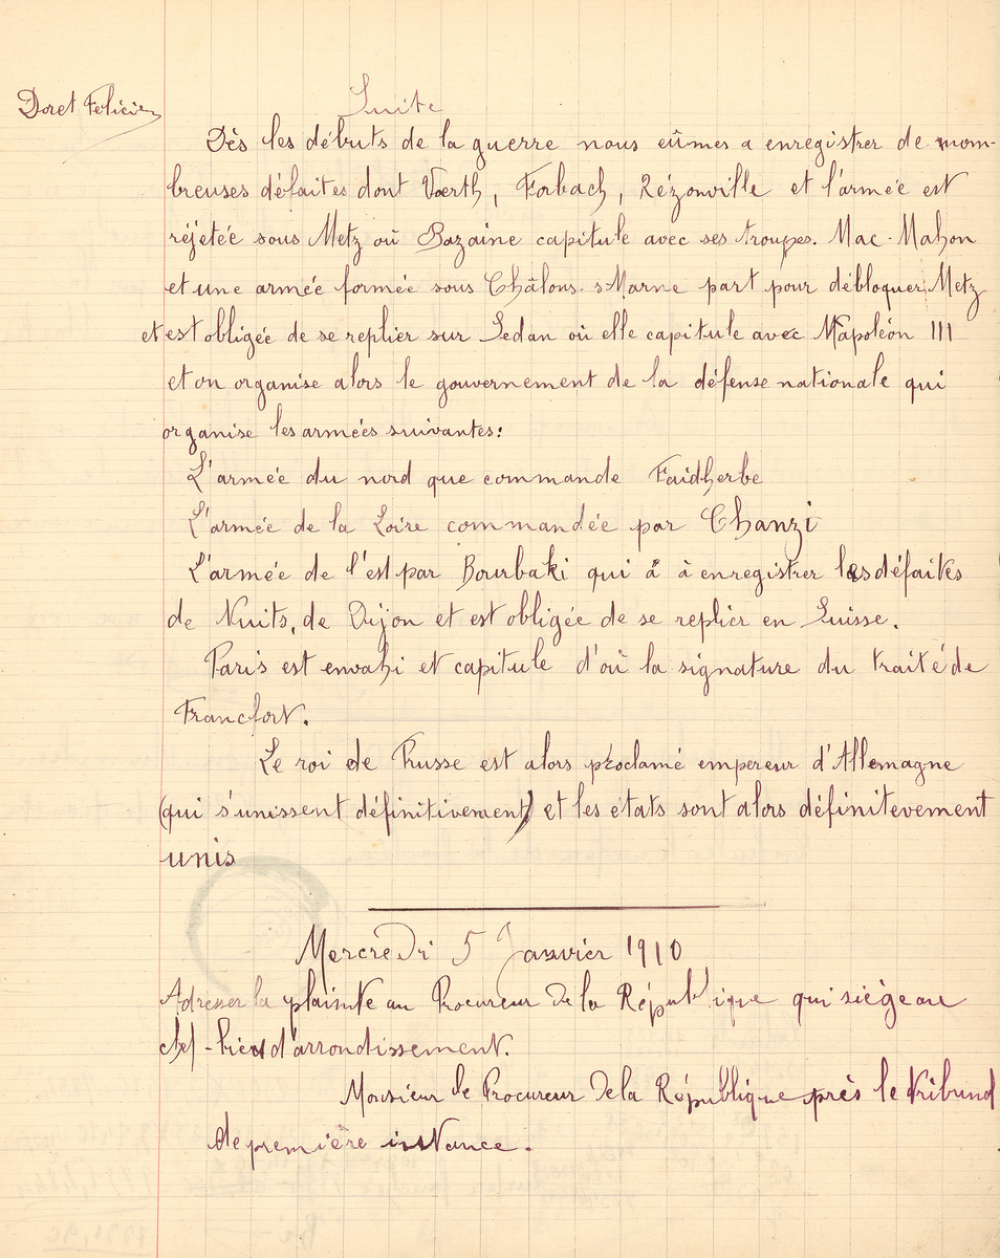 Doret Felicien
Suite
Dès les débuts de la guerre nous eûmes a enregistrer de nom-
breuses défaites dont Vœrth, Forbach, Rézonville et l'armée est
réjetée sous Metz où Bazaine capitule avec ses troupes. Mac-Mahon
et une armée formée sous Châlons s Marne part pour débloquer Metz
et est obligée de se replier sur Sedan où elle capitule avec Napoléon III
et on organise alors le gouvernement de la défense nationale qui
organise les armées suivantes:
L'armée du nord que commande Faidherbe
L'armée de la Loire commandée par Chanzi
L'armée de l'est par Bourbaki qui a à enregistrer les défaites
de Nuits, de Dijon et est obligée de se replier en Suisse.
Paris est envahi et capitule d'où la signature du traité de
Francfort.
Le roi de Prusse est alors proclamé empereur d'Allemagne
(qui s'unissent définitivement) et les états sont alors définitevement
unis
Mercredi 5 Janvier 1910
Adresser la plainte au Procureur de la République qui siège au
chef-lieu d'arrondissement.
Monsieur le Procureur de la République près le tribunal
de première instance.